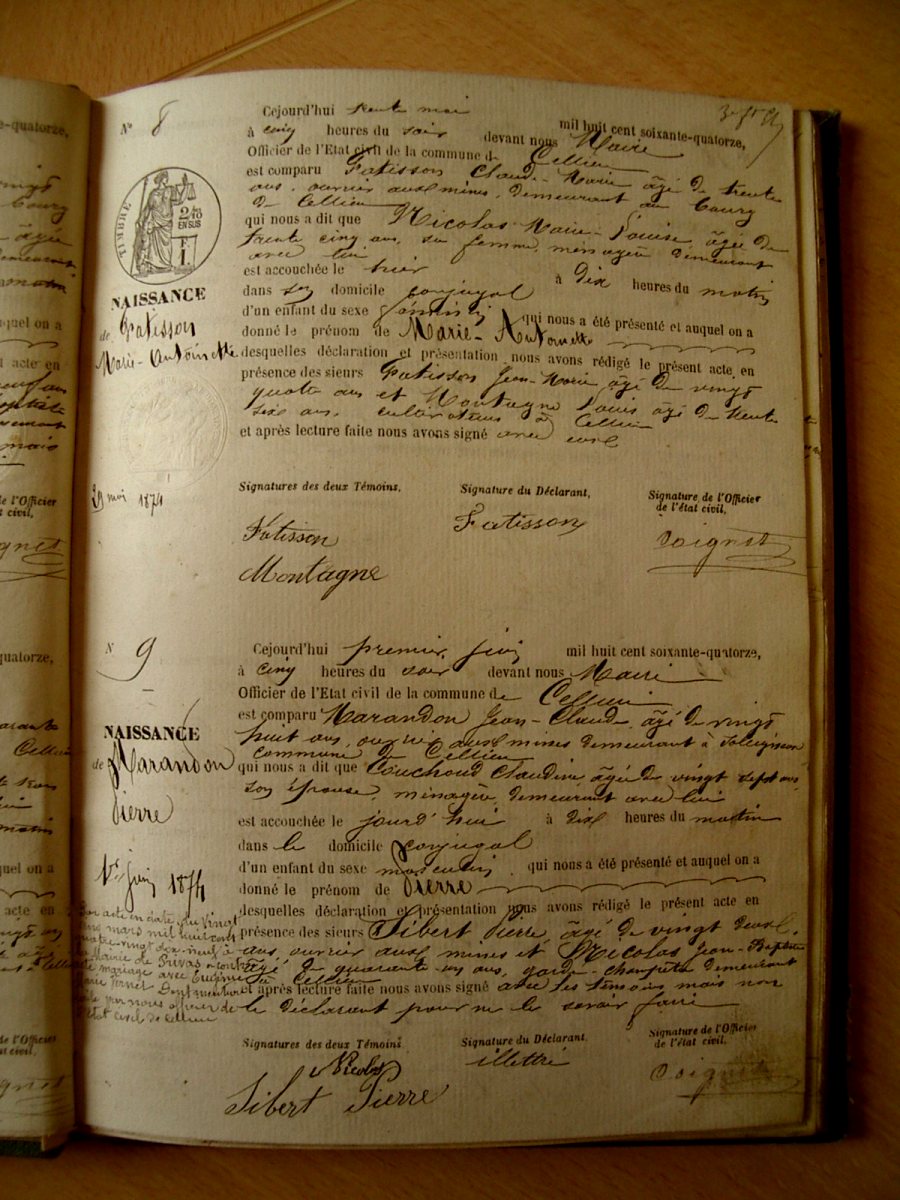 e-quatorze,
3e ft
N° 8
Cejourd'hui trente mai mil huit cent soixante-quatorze,
à cinq heures du soir devant nous Maire
Officier de l'Etat civil de la commune de Cellieu
est comparu Fatisson Claude-Marie âgé de trente
ans, ouvrier aux mines, demeurant au bourg
de Cellieu
qui nous a dit que Nicolas Marie-Louise, âgée de
trente cinq ans, sa femme, ménagère demeurant
avec lui
est accouchée le hier à dix heures du matin
dans son domicile conjugal
d'un enfant du sexe féminin qui nous a été présenté et auquel on a
donné le prénom de Marie-Antoinette
desquelles déclaration et présentation nous avons rédigé le présent acte en
présence des sieurs Fatisson Jean-Marie âgé de vingt
quatre ans et Montagne Louis âgé de trente
six ans, cultivateurs à Cellieu
et après lecture faite nous avons signé avec eux
TIMBRE
2/10
EN SUS
F
1.
NAISSANCE
de Fatisson
Marie-Antoinette
29 mai 1874
Signatures des deux Témoins, Signature du Déclarant, Signature de l'Officier
de l'état civil,
Fatisson Fatisson Coignet
Montagne
N° 9
Cejourd'hui premier juin mil huit cent soixante-quatorze,
à cinq heures du soir devant nous Maire
Officier de l'Etat civil de la commune de Cellieu
est comparu Marandon Jean-Claude, âgé de vingt
huit ans, ouvrier aux mines demeurant à
commune de Cellieu
qui nous a dit que Couchoud Claudine, âgée de vingt sept ans,
son épouse, ménagère, demeurant avec lui
est accouchée le jourd'hui à dix heures du matin
dans le domicile conjugal
d'un enfant du sexe masculin qui nous a été présenté et auquel on a
donné le prénom de Pierre
desquelles déclaration et présentation nous avons rédigé le présent acte en
présence des sieurs Sibert Pierre âgé de vingt deux
ans, ouvrier aux mines et Nicolas Jean-Baptiste
âgé de quarante un ans, garde-champêtre demeurant
à Cellieu
et après lecture faite nous avons signé avec les témoins mais non
le déclarant pour ne le savoir faire
NAISSANCE
de Marandon
Pierre
1er juin 1874
Par acte en date du vingt
mars mil huit cent
quatre vingt dix-neuf à
la Mairie de Privas a contracté
mariage avec Eugénie
Marie Dont mention
faite par nous officier de
l'état civil de Cellieu
Signatures des deux Témoins Signature du Déclarant, Signature de l'Officier
de l'état civil,
Nicolas illettré Coignet
Sibert Pierre